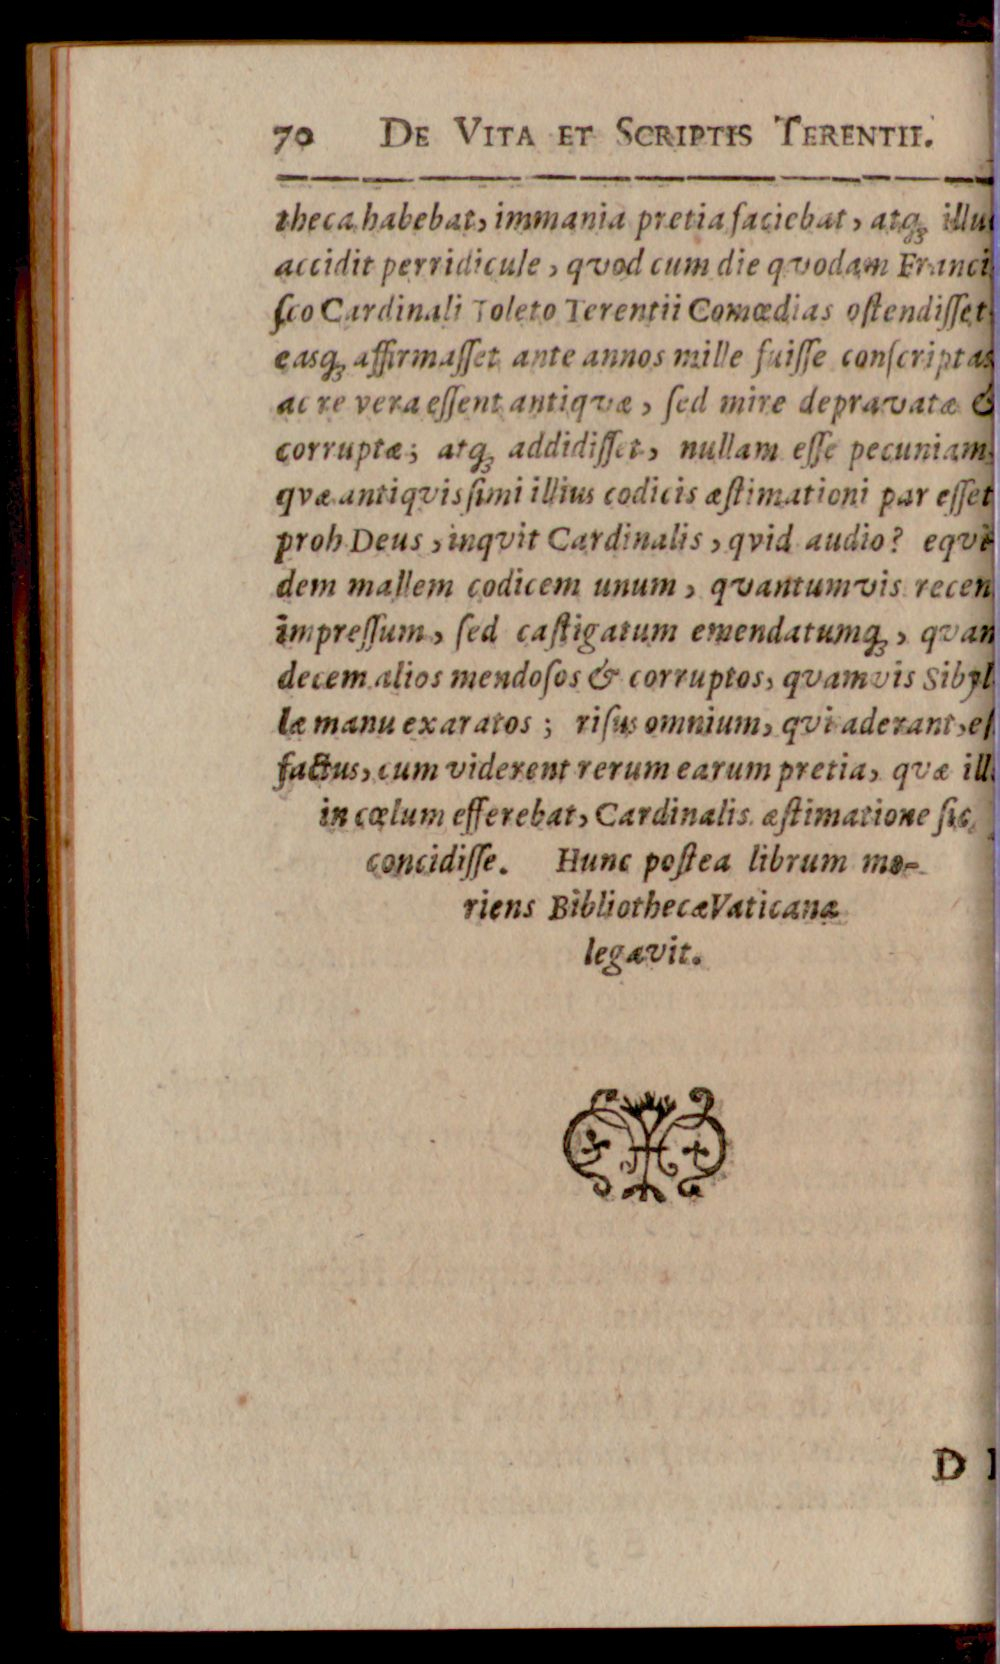 70 DE VITA ET SCRIPTIS TERENTII.
theca habebat, immania pretia faciebat, atq́; illu
accidit perridicule, qvod cum die qvodam Franci
ſco Cardinali Toleto Terentii Comœdias oſtendiſſet
easq́; affirmaſſet ante annos mille fuiſſe conſcriptas
ac re vera eſſent antiqvæ, ſed mire depravatæ &
corruptæ; atq́; addidiſſet, nullam eſſe pecuniam
qvæ antiqvisſimi illius codicis æſtimationi par eſſet
proh Deus, inqvit Cardinalis, qvid audio? eqvi
dem mallem codicem unum, qvantumvis recen
impreſſum, ſed caſtigatum emendatumq́;, qvan
decem alios mendoſos & corruptos, qvamvis Sibyl
læ manu exaratos; riſus omnium, qvi aderant, eſ
factus, cum viderent rerum earum pretia, qvæ ill
in cœlum efferebat, Cardinalis æſtimatione ſic
concidiſſe. Hunc poſtea librum mo-
riens Bibliothecæ Vaticanæ
legavit.
D